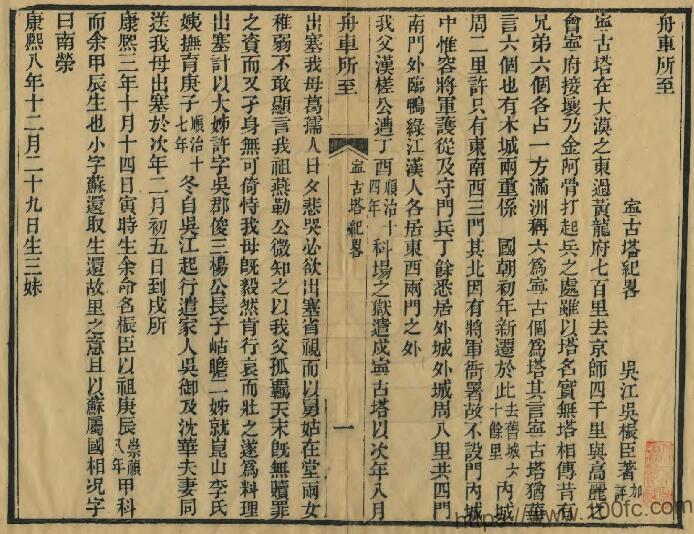 舟車所至
寧古塔紀畧　吳江吳桭臣著
寧古塔在大漠之東過黃龍府七百里去京師四千里與高麗之
會寧府接壤乃金阿骨打起兵之處雖以塔名實無塔相傳昔有
兄弟六個各占一方滿洲稱六爲寧古個爲塔其言寧古塔猶華
言六個也有木城兩重係　國朝初年新遷於此去舊城六十餘里內城
周二里許只有東南西三門其北因有將軍衙署故不設門內城
中惟容將軍護從及守門兵丁餘悉居外城外城周八里共四門
南門外臨鴨綠江漢人各居東西兩門之外
我父漢槎公遭丁酉順治十四年科場之獄遣戍寧古塔以次年八月
舟車所至　寧古塔紀畧　一
出塞我母葛孺人日夕悲哭必欲出塞省視而以舅姑在堂兩女
稚弱不敢顯言我祖燕勒公微知之以我父孤羈天末旣無贖罪
之資而又孑身無可倚恃我母旣毅然肯行哀而壯之遂爲料理
出塞計以大姊許字吳郡俊三楊公長子岵瞻二姊就崑山李氏
姨撫育庚子順治十七年冬自吳江起行遣家人吳御及沈華夫妻同
送我母出塞於次年二月初五日到戍所
康熙三年十月十四日寅時生余命名桭臣以祖庚辰崇禎八年甲科
而余甲辰生也小字蘇還取生還故里之意且以蘇屬國相況字
曰南榮
康熙八年十二月二十九日生三妹
www.100fc.com